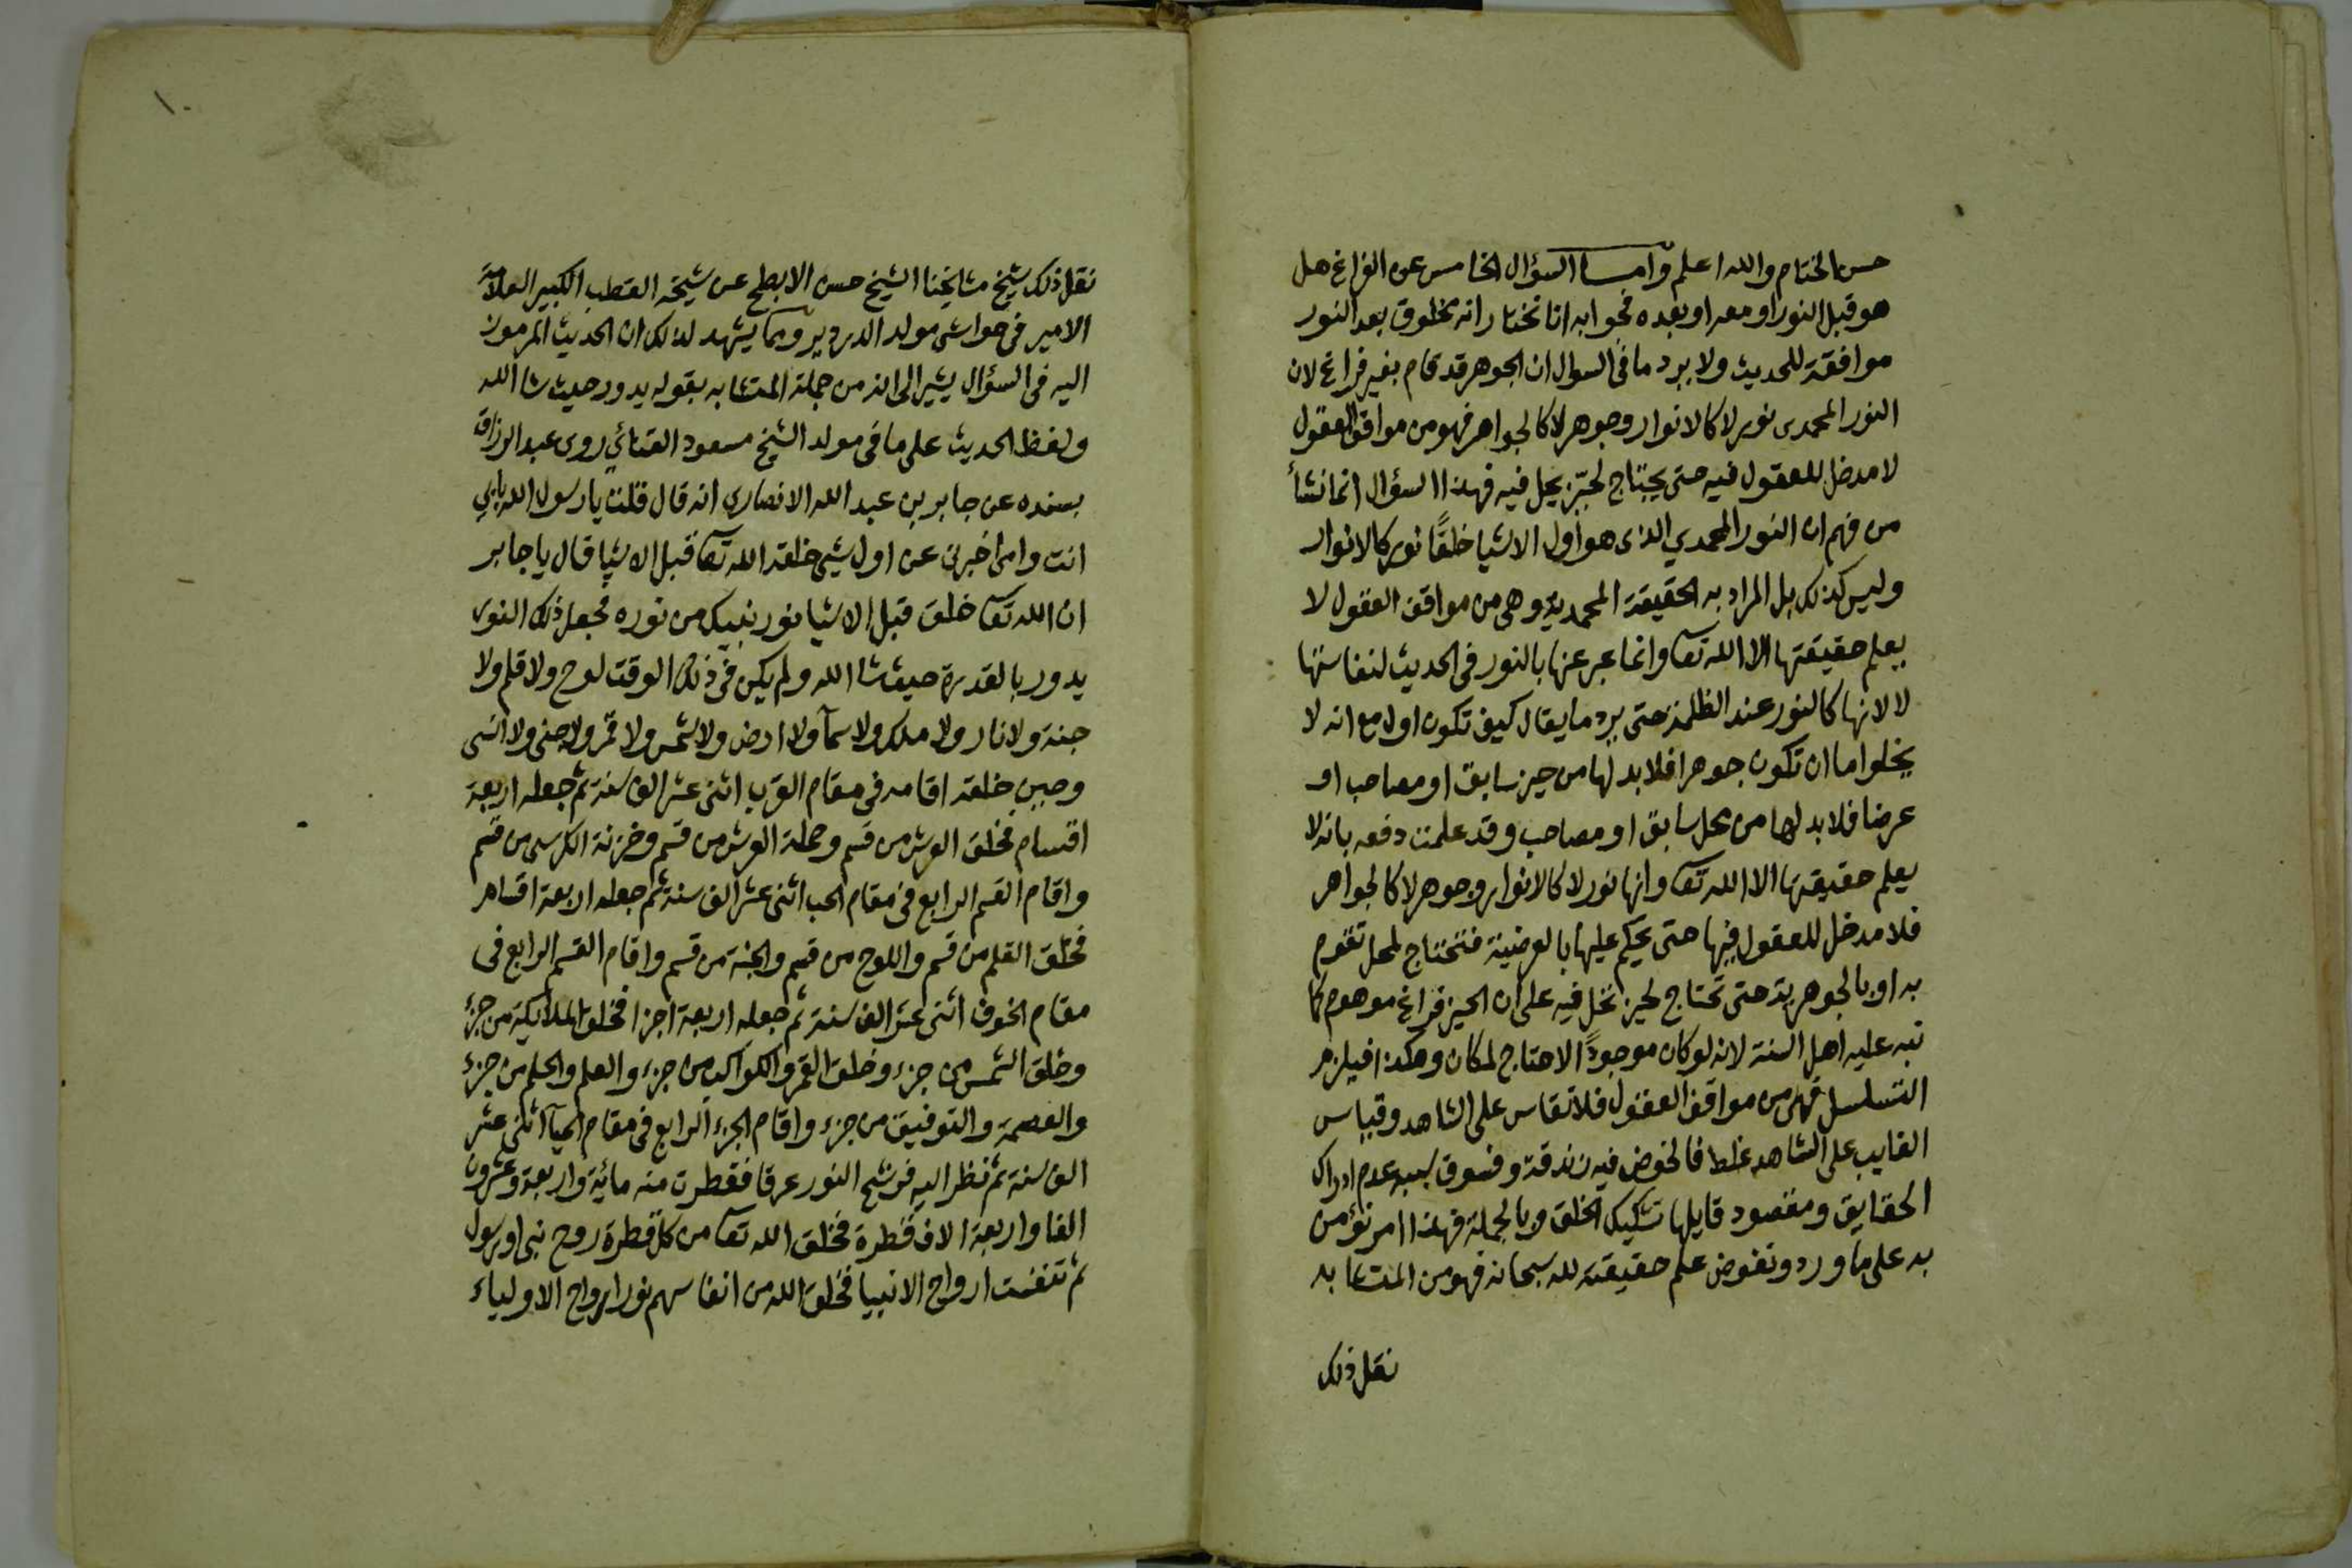 حسن الختام والله اعلم وامــا السؤال الخامس عن الفراغ هل
هو قبل النور او معه او بعده فجوابه انا نختار انه مخلوق بعد النور
موافقة للحديث ولا يرد ما في السوال ان الجوهر قد قام بغير فراغ لان
النور المحمدى نور لا كالانوار وجوهر لا كالجواهر فهو من مواقف العقول
لا مدخل للعقول فيه حتى يحتاج لحيّز يحل فيه فهذا السؤال انما نشأ
من فهم ان النور المحمدي الذى هو اول الاشيا خلقًا نور كالانوار
وليس كذلك بل المراد به الحقيقة المحمدية وهى من مواقف العقول لا
يعلم حقيقتها الا الله تعا وانما عبر عنها بالنور فى الحديث لنفاستها
لا لانها كالنور عند الظلمة حتى يرد ما يقال كيف تكون اولا مع انه لا
يخلوا اما ان تكون جوهرا فلا بد لها من حيز سابق او مصاحب او
عرضا فلا بد لها من محل سابق او مصاحب وقد علمت دفعه بانه لا
يعلم حقيقتها الا الله تعا وانها نور لا كالانوار وجوهر لا كالجواهر
فلا مدخل للعقول فيها حتى يحكم عليها بالعرضية فتحتاج لمحل تقوم
به او بالجوهرية حتى تحتاج لحيز تحل فيه على ان الحيز فراغ موهوم كما
نبه عليه اهل السنة لانه لو كان موجودًا لاحتاج لمكان وهكذا فيلزم
التسلسل فهى من مواقف العقول فلا تقاس على الشاهد وقياس
الغايب على الشاهد غلط فالخوض فيه زندقة وفسوق لسبب عدم ادراك
الحقايق ومقصود قايلها تشكيك الخلق وبالجملة فهذا امر نؤمن
به على ما ورد ونفوض علم حقيقته لله سبحانه فهو من المتشابه
نقل ذلك
١٠
نقل ذلك شيخ مشايخنا الشيخ حسن الابطح عن شيخه القطب الكبير العلامة
الامير فى حواشى مولد الدردير ومما يشهد لذلك ان الحديث المرموز
اليه فى السؤال يشير الى انه من جملة المتشابه بقوله يدور حيث شا الله
ولفظ الحديث على ما فى مولد الشيخ مسعود القنائي روى عبد الرزاق
بسنده عن جابر بن عبد الله الانصاري انه قال قلت يا رسول الله بابي
انت وامى اخبرنى عن اول شيى خلقه الله تعا قبل الاشيا قال يا جابر
ان الله تعا خلق قبل الاشيا نور نبيك من نوره فجعل ذلك النور
يدور بالقدرة حيث شا الله ولم يكن فى ذلك الوقت لوح ولا قلم ولا
جنة ولا نار ولا ملك ولا سمآ ولا ارض ولا شمس ولا قمر ولا جنى ولا انسى
وحين خلقه اقامه فى مقام القرب اثنى عشر الف سنة ثم جعله اربعة
اقسام فخلق العرش من قسم وحملة العرش من قسم وخزنة الكرسى من قسم
واقام القسم الرابع فى مقام الحب اثنى عشر الف سنة ثم جعله اربعة اقسام
فخلق القلم من قسم واللوح من قسم والجنة من قسم واقام القسم الرابع فى
مقام الخوف اثنى عشر الف سنة ثم جعله اربعة اجزا فخلق الملايكة من جزء
وخلق الشمس من جزء وخلق القمر والكواكب من جزء والعلم والحلم من جزء
والعصمة والتوفيق من جزء واقام الجزء الرابع فى مقام الحيآ اثنى عشر
الف سنة ثم نظر اليه فرشح النور عرقا فقطرت منه مائية واربعة وعشرون
الفا واربعة الاف قطرة فخلق الله تعا من كل قطرة روح نبى او رسول
ثم تنفست ارواح الانبيا فخلق الله من انفاسهم نور ارواح الاولياء